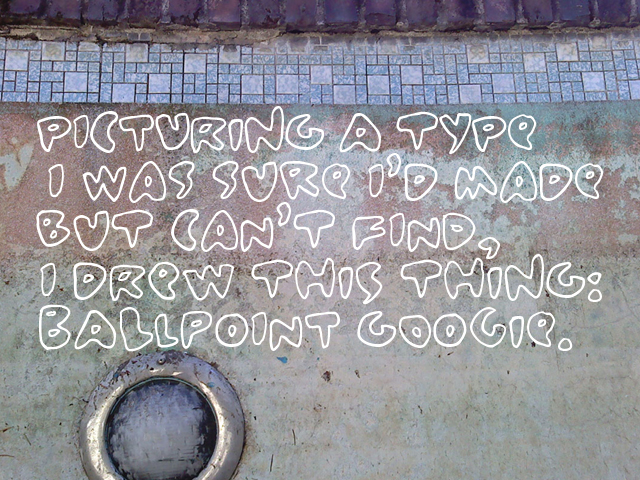 PICTURING A TYPE
I WAS SURE I'D MADE
BUT CAN'T FIND,
I DREW THIS THING:
BALLPOINT GOOGIE.